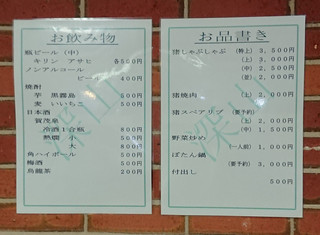 お飲み物
瓶ビール（中）
キリン アサヒ 各600円
ノンアルコール
ビール 400円
焼酎
芋 黒霧島 500円
麦 いいちこ 500円
日本酒
賀茂泉
冷酒1合瓶 800円
熱燗 小 500円
大 800円
角ハイボール 500円
梅酒 500円
烏龍茶 200円
お品書き
猪しゃぶしゃぶ（特上）3，500円
（上）3，000円
（中）2，500円
（並）2，000円
猪焼肉 （上）2，000円
猪スペアリブ（要予約）
（上）2，000円
（中）1，500円
野菜炒め
（一人前）1，000円
ぼたん鍋
（要予約）3，000円
付出し
500円